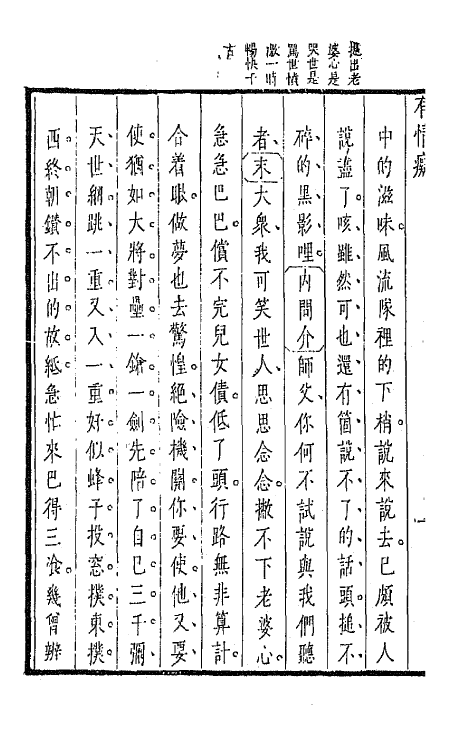 出老
婆心是
哭世是
罵世憤
激一時
暢快千
古
有情癡
中的滋味。風流隊裡的下梢。說來說去。已頗被人
說盡了、咳、雖然可也、還有箇說不了的話頭、搥不
碎的黑影哩、內問介師父、你何不試說與我們聽
者、末大衆、我可笑世人、思思念念。撇不下老婆心。
急急巴巴。償不完兒女債。低了頭。行路無非算計。
合着眼。做夢也去驚惶。絕險機關、你要使他、又要
使。猶如大將對壘、一鎗一劍、先陪了自己三千。彌
天世網、跳一重又入一重。好似蜂子投窓、撲東撲
西。終朝鑽不出的故紙。急忙來巴得三飡。幾曾辨